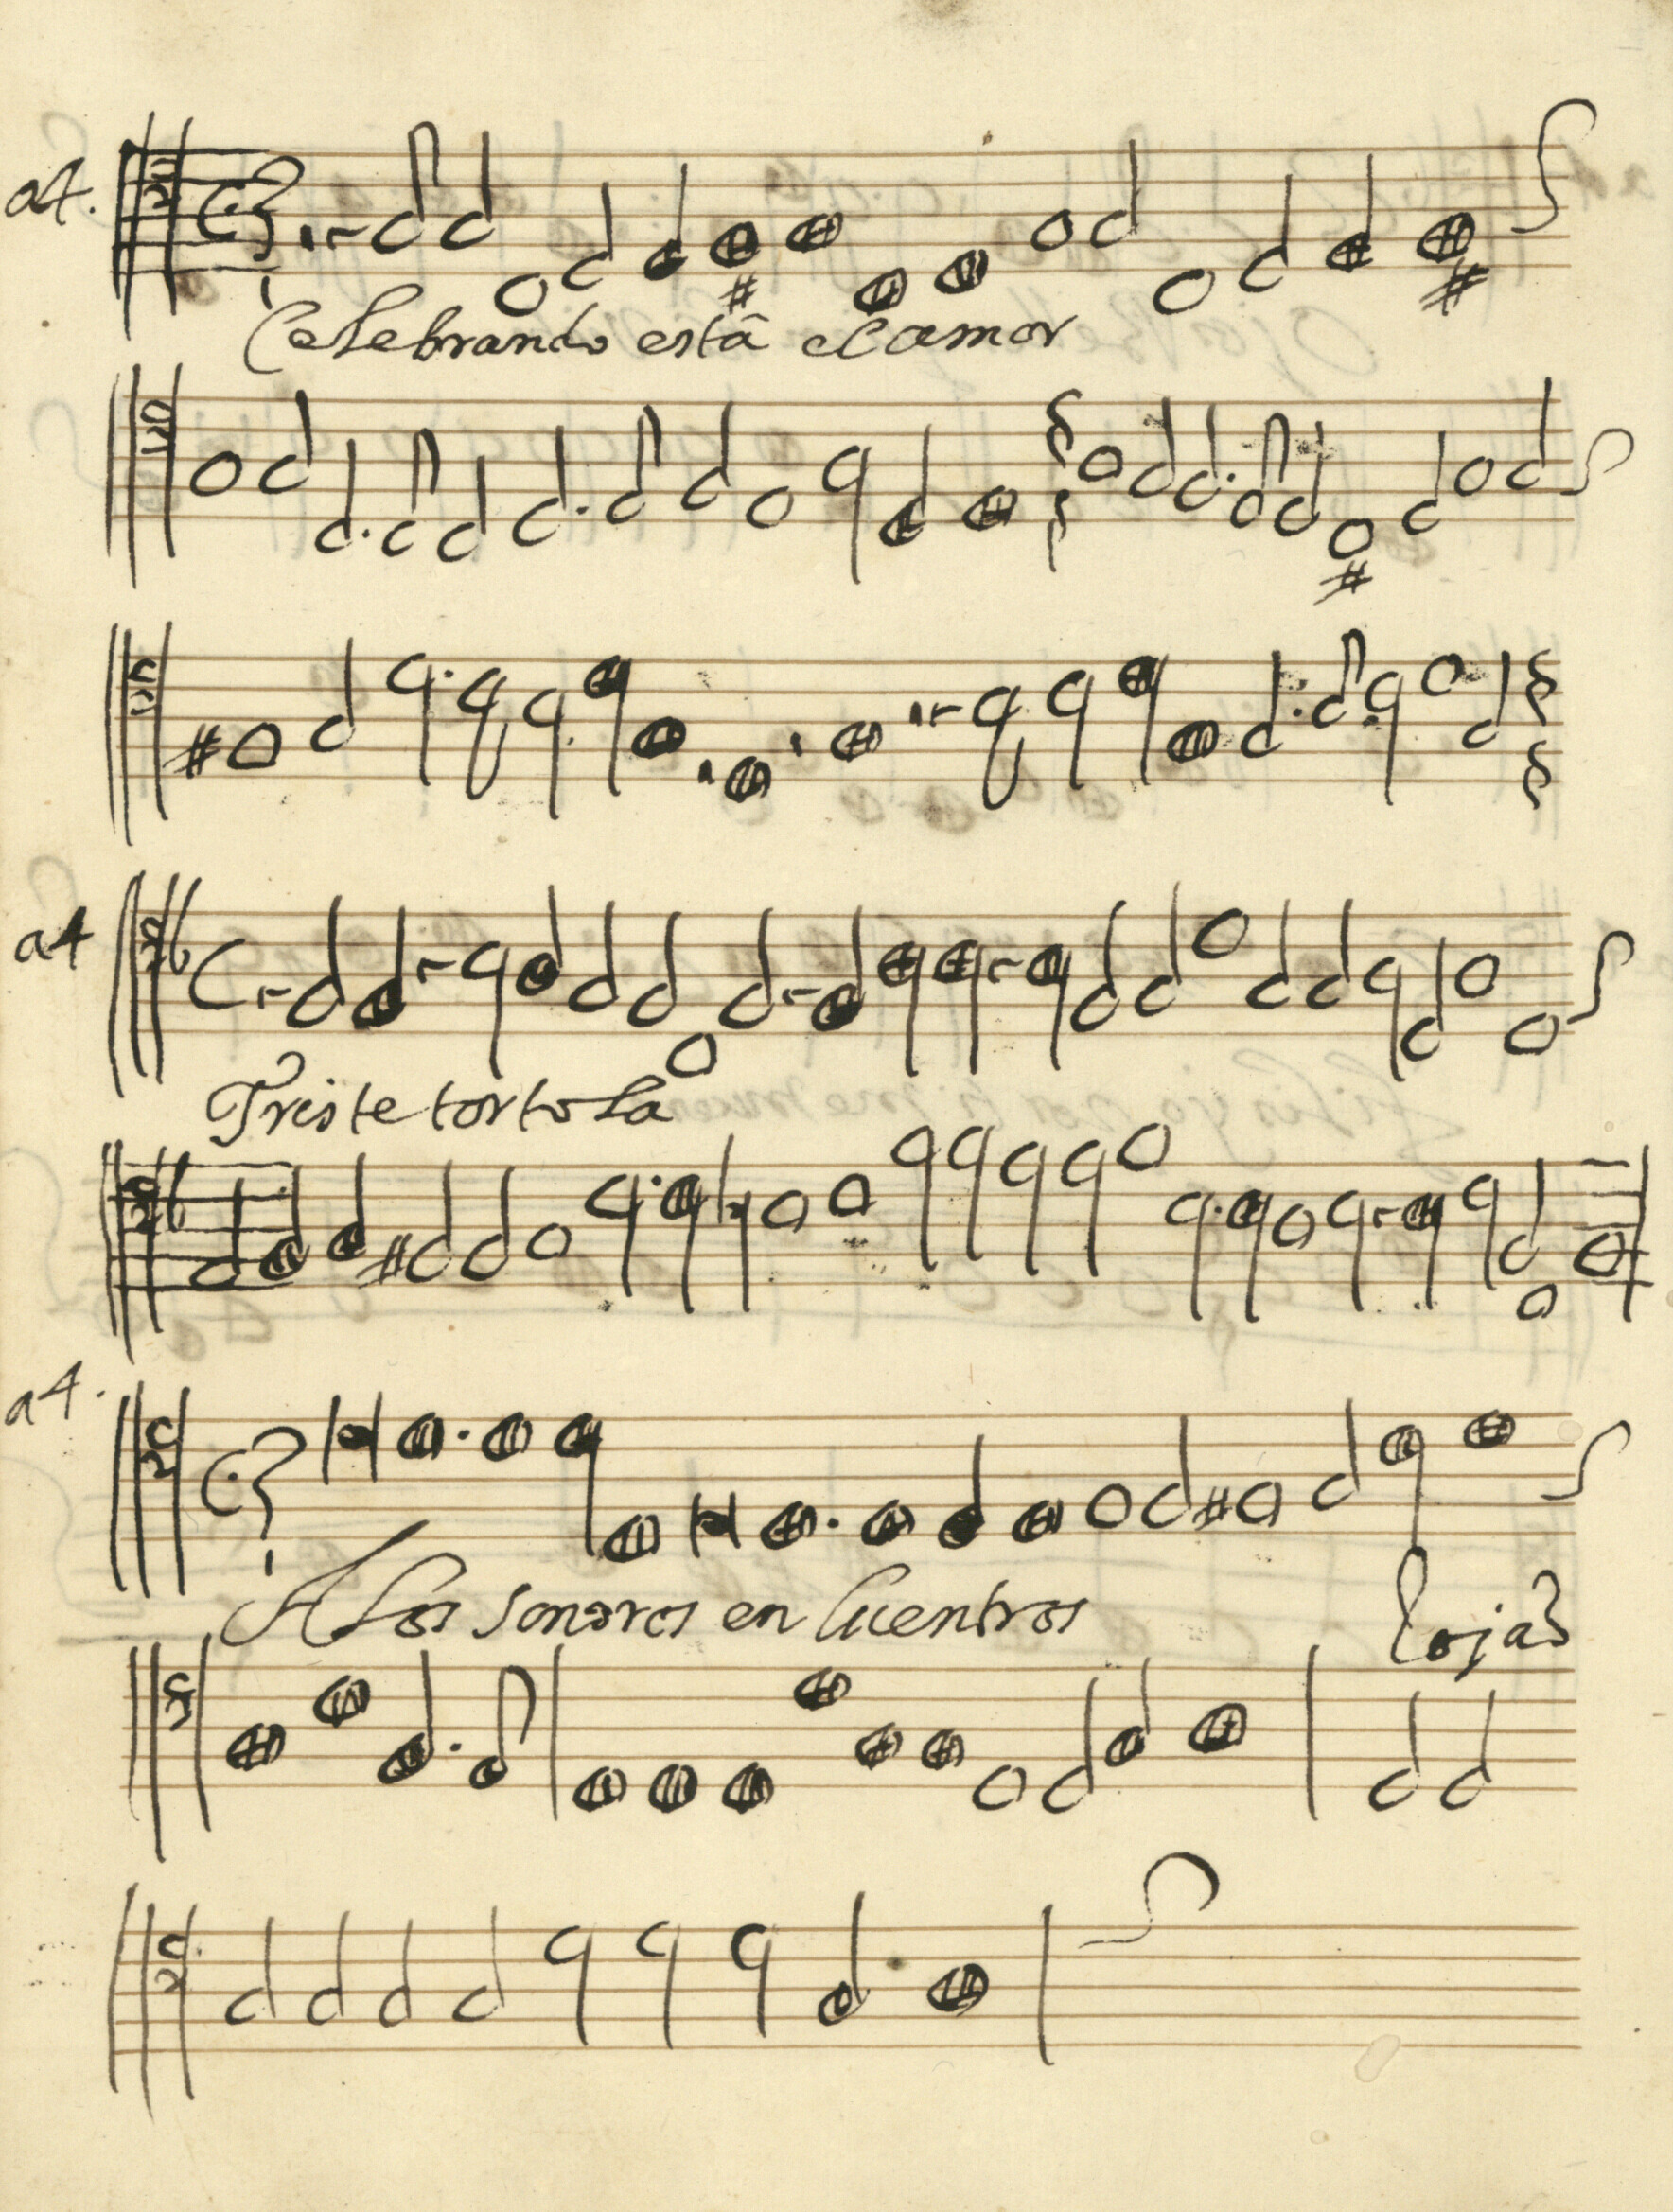 a4.
Celebrando està el amor
a4
Triste tortola
a4.
A los sonoros en Cuentros
Cojas